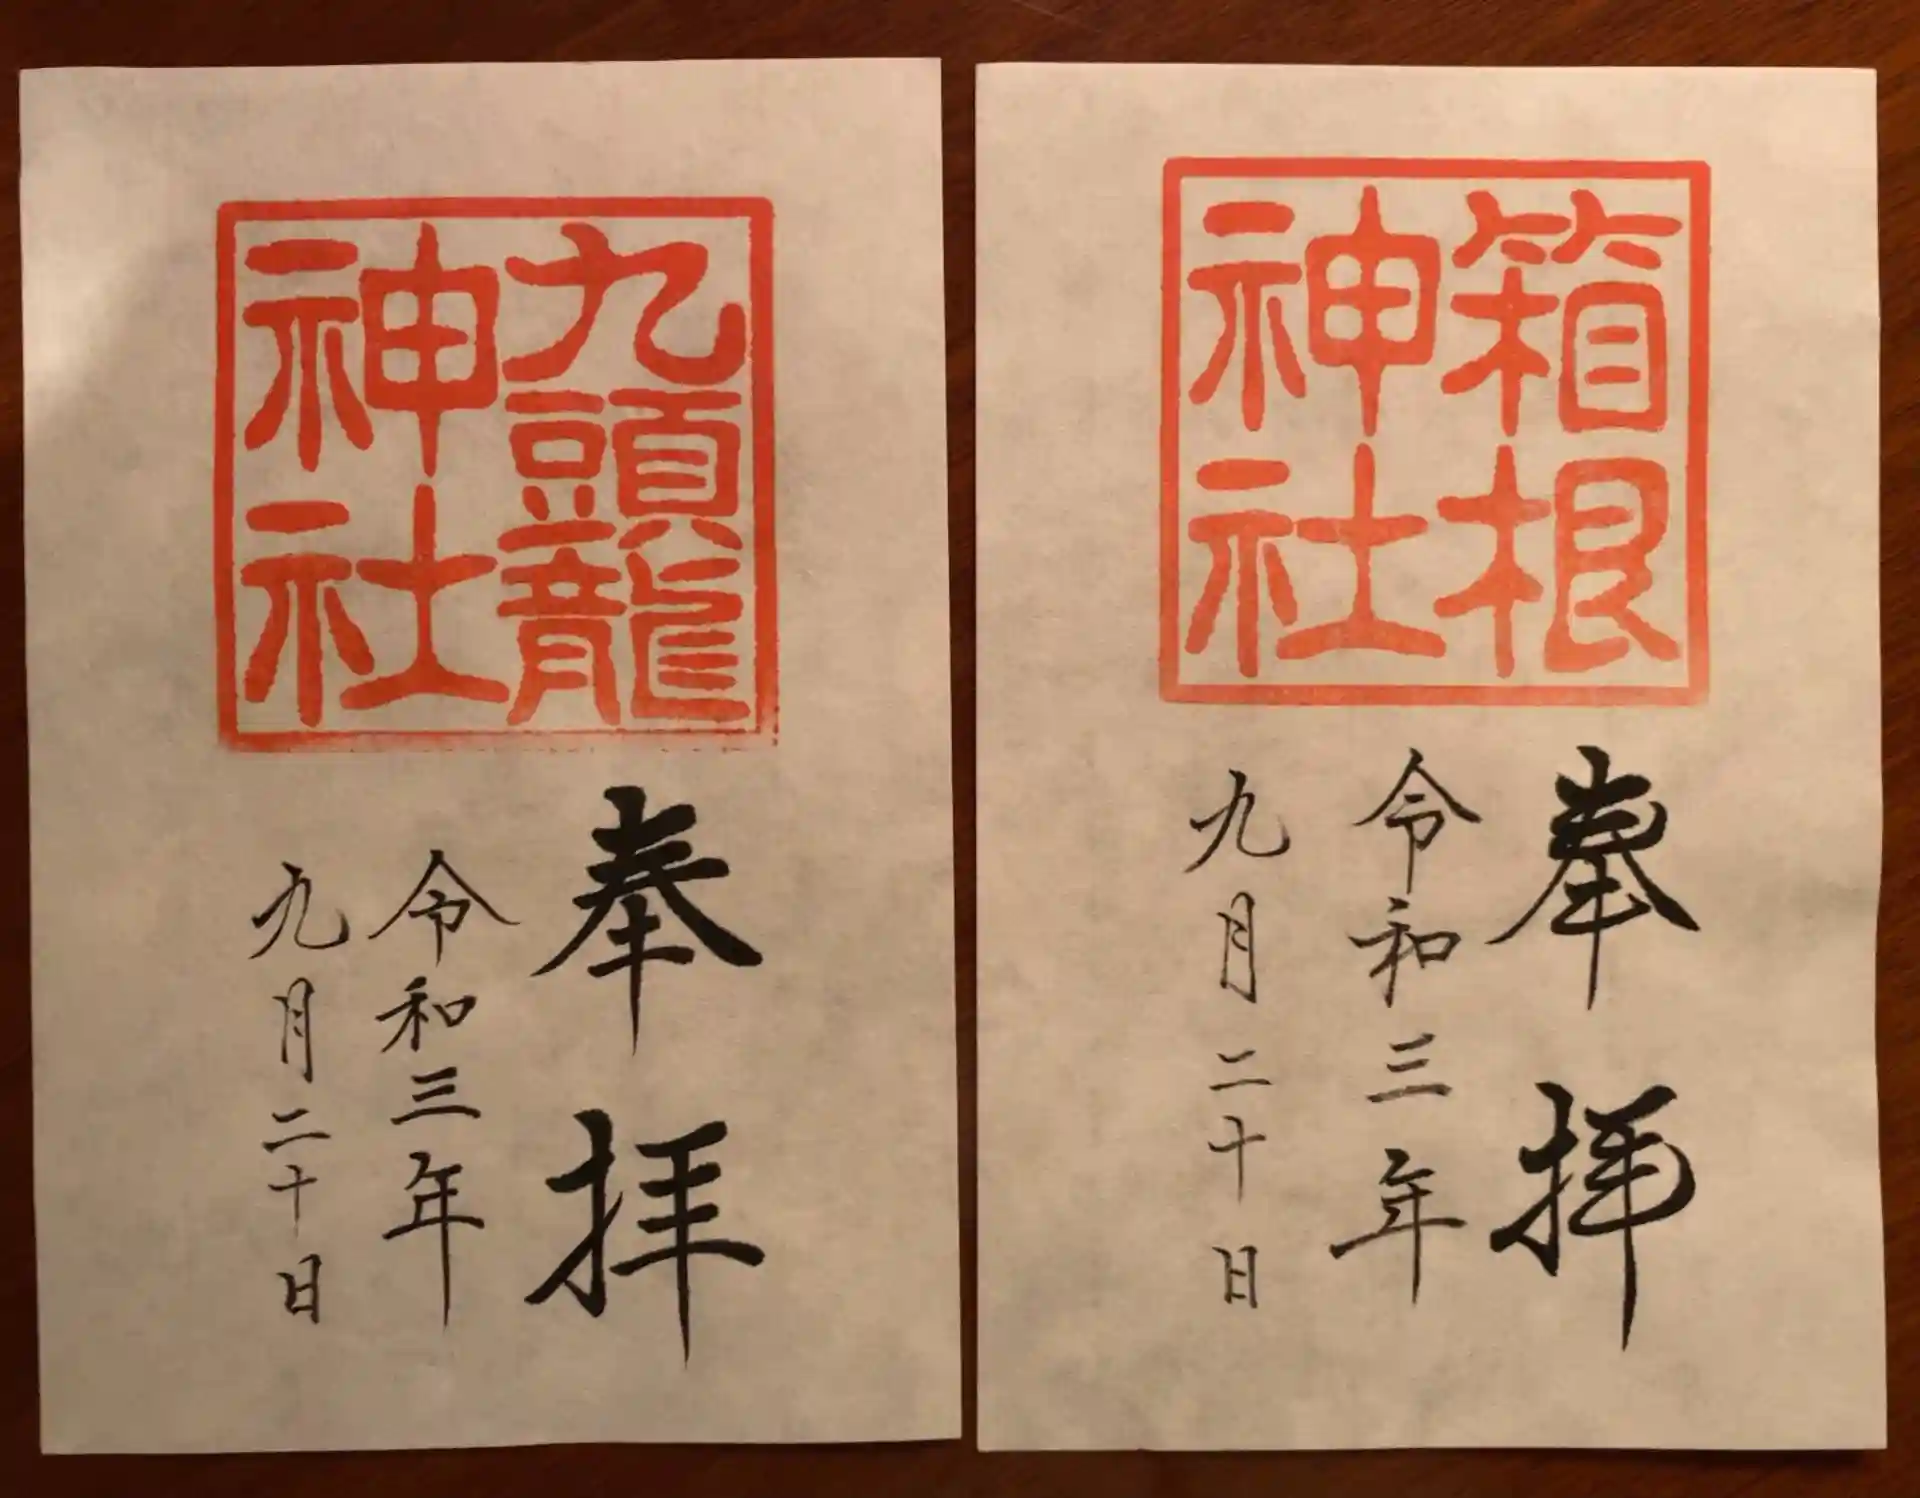 九頭龍
神社
奉拝
令和三年
九月二十日
箱根
神社
奉拝
令和三年
九月二十日